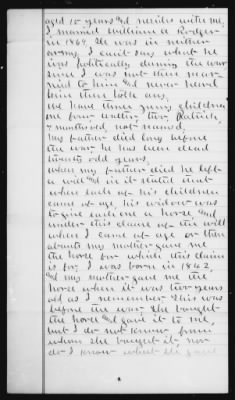 aged 15 years and resides with me.
I married William A Rodgers
in 1869. He was in neither
army, I can't say what he
was politically during the war
since I was not then mar-
ried to him and never heard
him then talk any.
We have three young children
one four, another two,
7 months old, not named.
My father died long before
the war, he has been dead
twenty odd years.
When my father died he left
a will and in it stated that
when each of his children
came of age, his widow was
to give each one a horse, and
under this clause of the will
when I came of age or there
abouts my mother gave me
the horse for which this claim
is for, I was born in 1842,
and my mother gave me the
horse when it was two years
old as I remember. This was
before the war. She bought
the horse and gave it to me,
but I do not know from
whom she bought it, nor
do I know what she gave